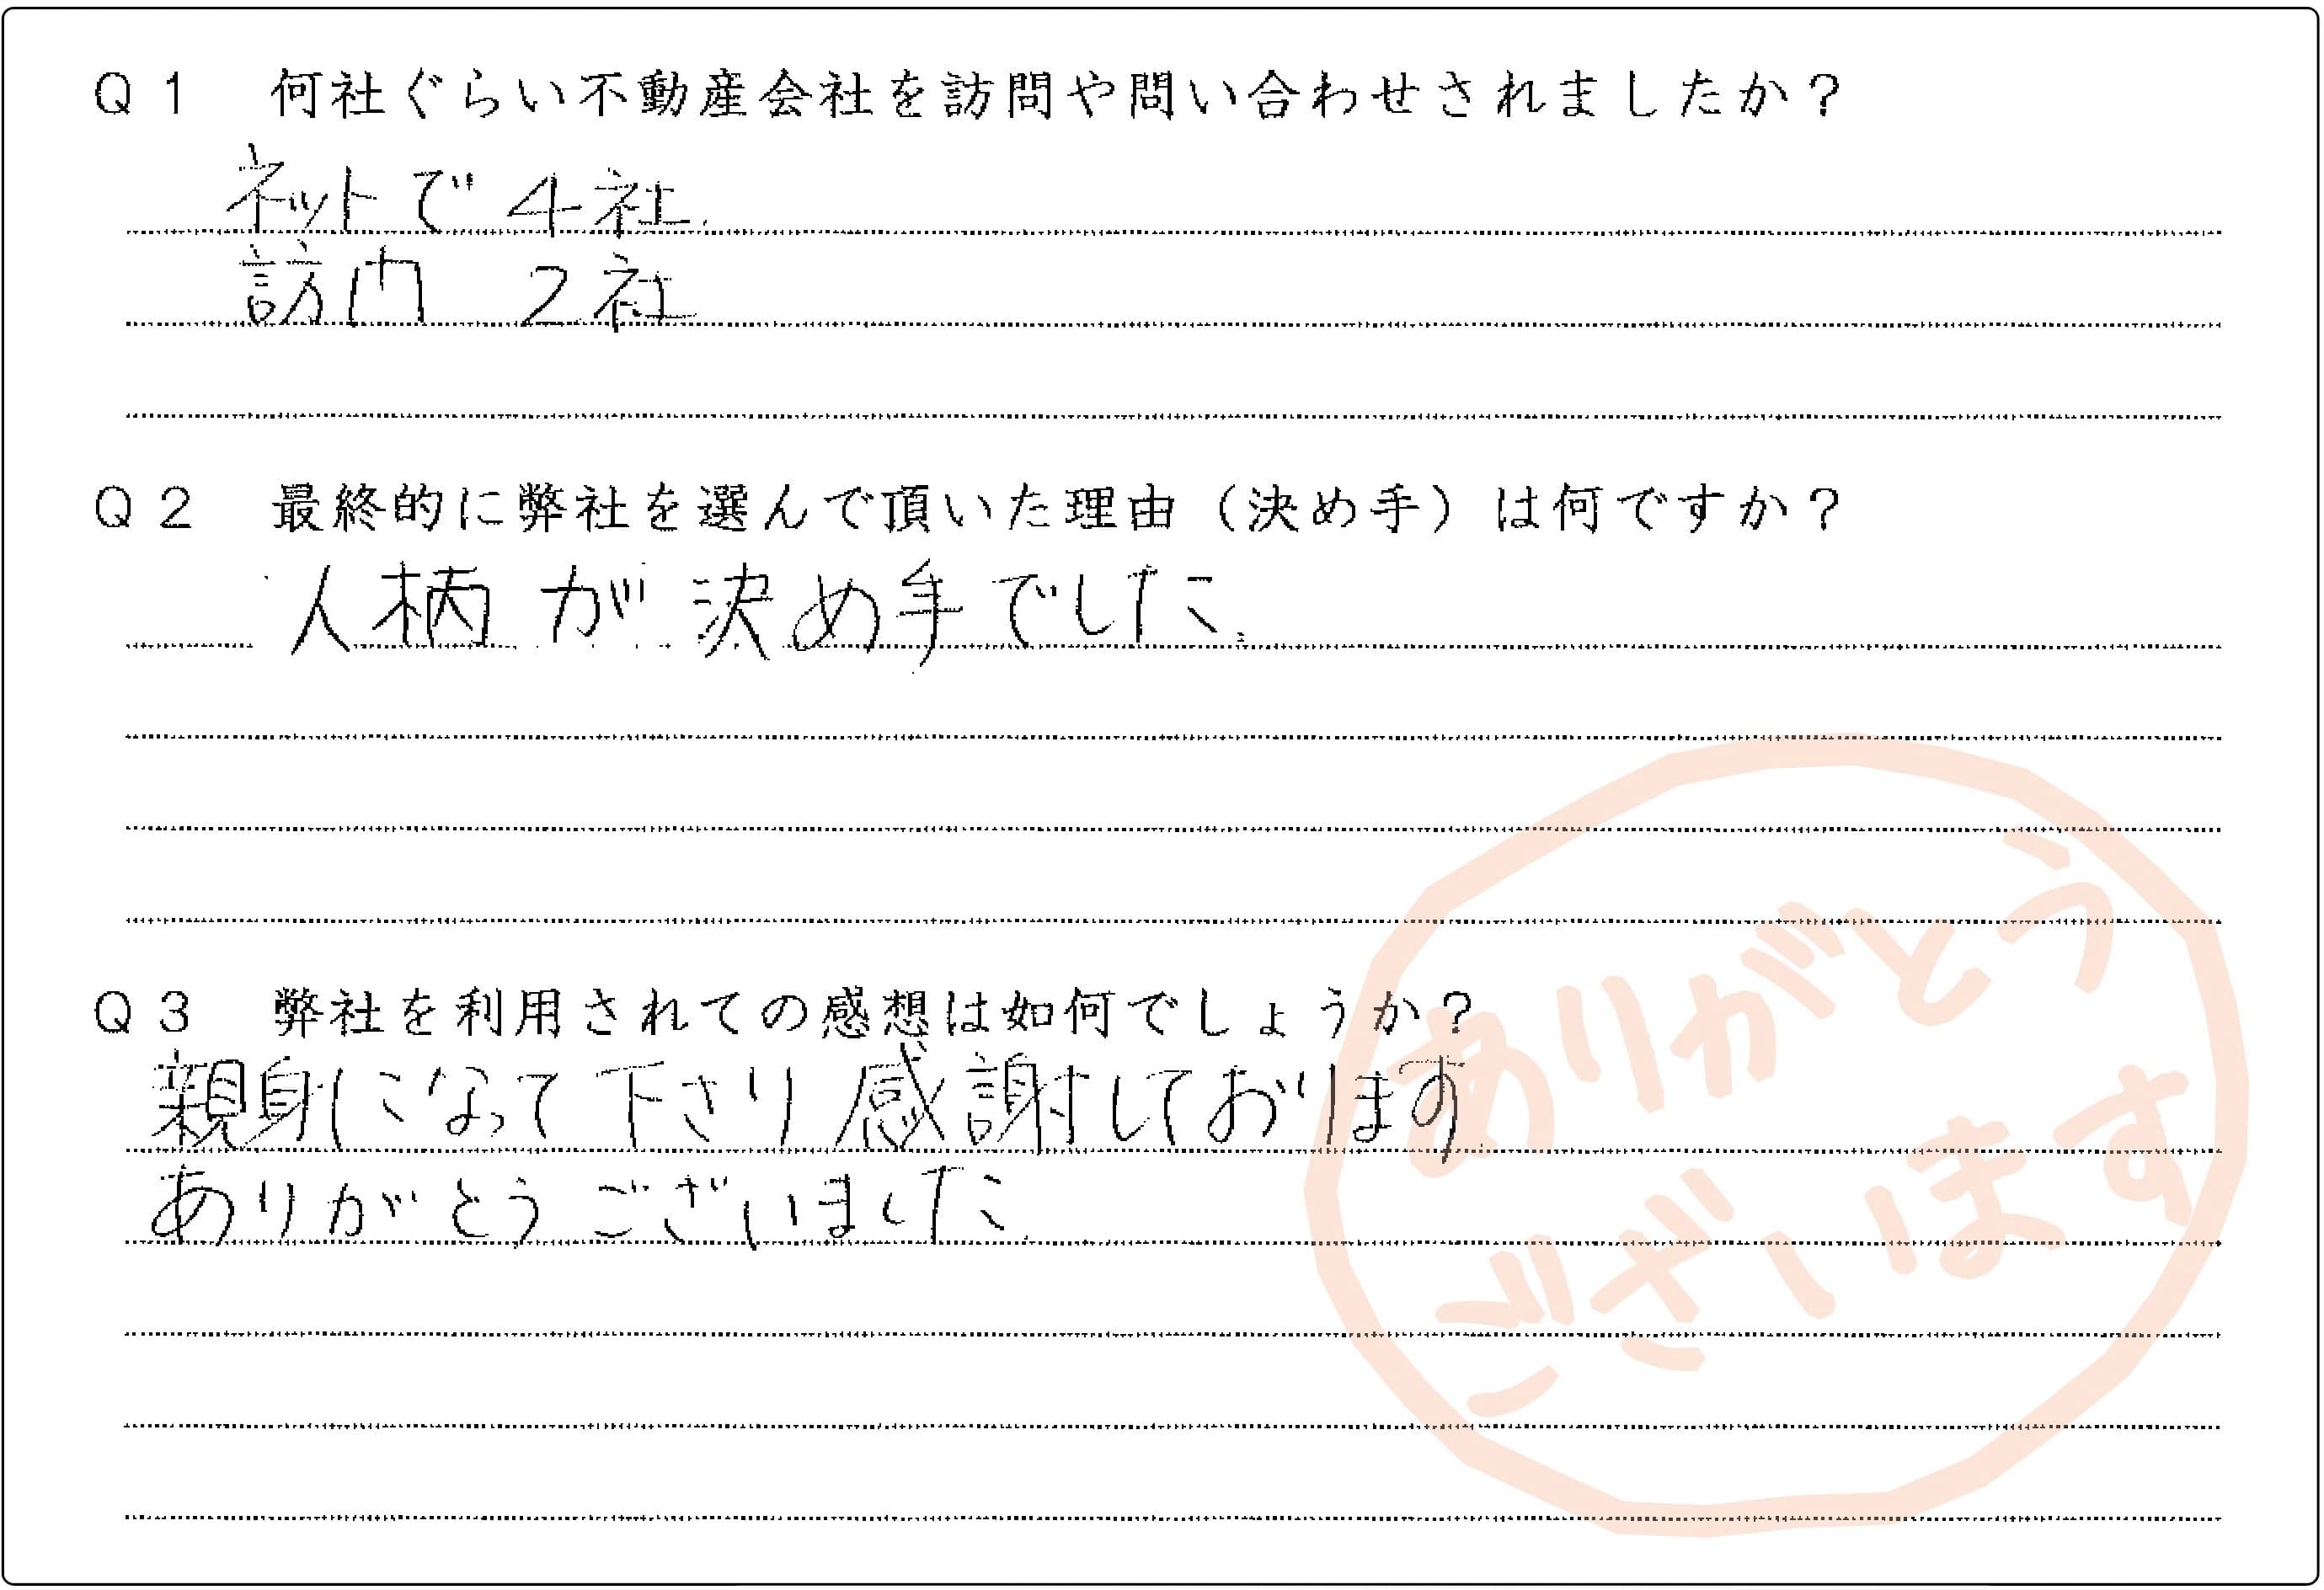 Q1 何社ぐらい不動産会社を訪問や問い合わせされましたか？
ネットで4社.
訪門 2社
Q2 最終的に弊社を選んで頂いた理由（決め手）は何ですか？
人柄が決め手でした.
Q3 弊社を利用されての感想は如何でしょうか？
親身になって下さり感謝しております.
ありがとうございました.
ありがとう
ございます